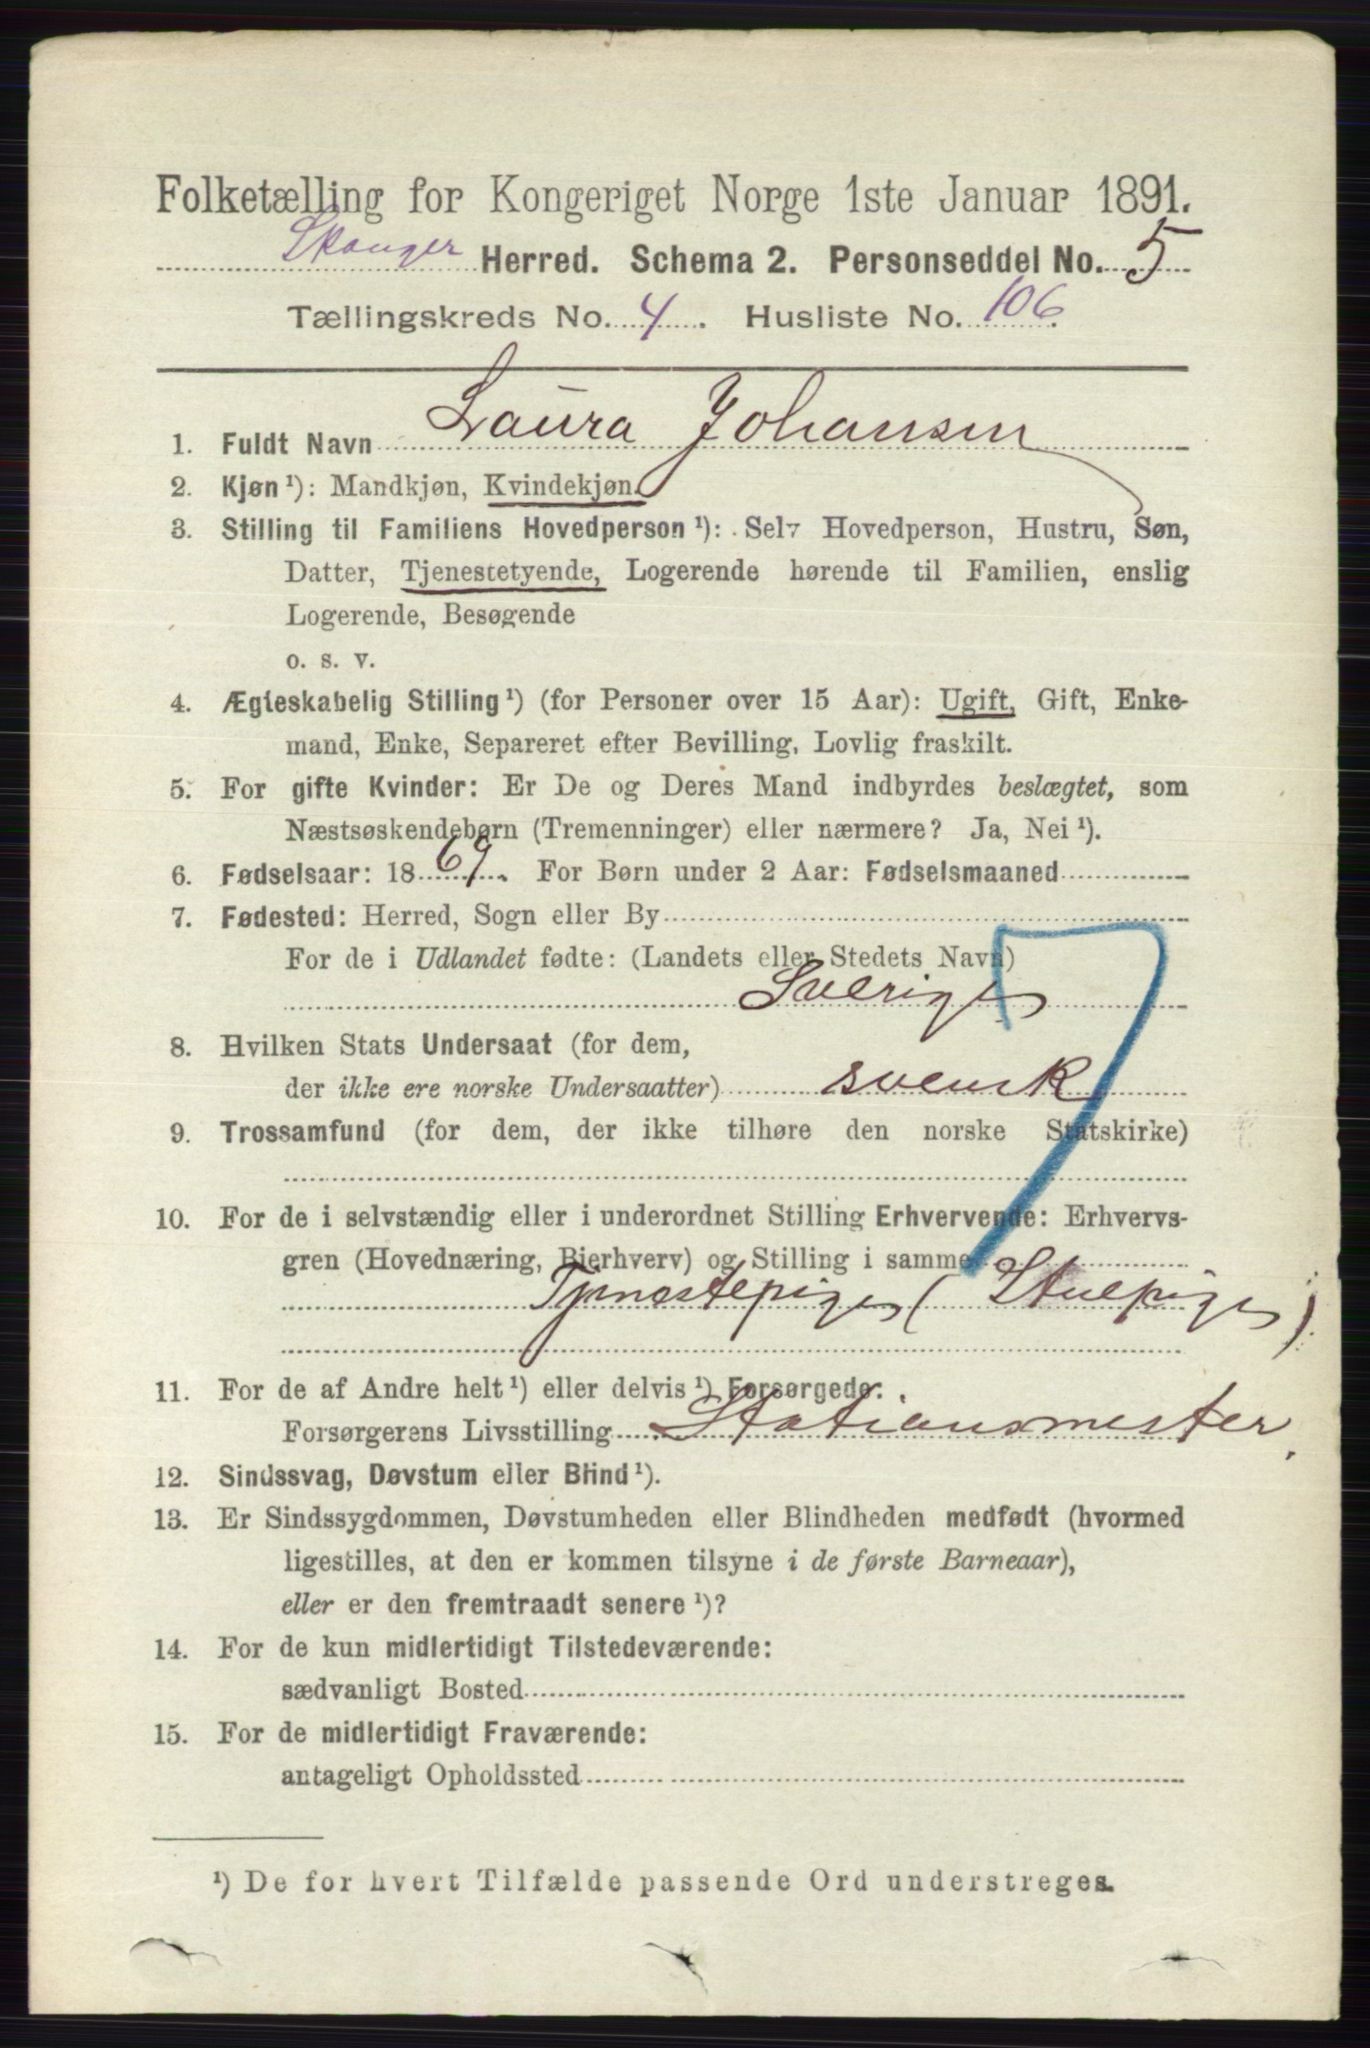 Folketælling for Kongeriget Norge 1ste Januar 1891.
Skouger Herred. Schema 2. Personseddel No. 5
Tællingskreds No. 4. Husliste No. 106.
1. Fuldt Navn Laura Johansen
2. Kjøn ¹): Mandkjøn, Kvindekjøn.
3. Stilling til Familiens Hovedperson ¹): Selv Hovedperson, Hustru, Søn,
Datter, Tjenestetyende, Logerende hørende til Familien, enslig
Logerende, Besøgende
o. s. v.
4. Ægteskabelig Stilling ¹) (for Personer over 15 Aar): Ugift, Gift, Enke-
mand, Enke, Separeret efter Bevilling, Lovlig fraskilt.
5. For gifte Kvinder: Er De og Deres Mand indbyrdes beslægtet, som
Næstsøskendebørn (Tremenninger) eller nærmere? Ja, Nei ¹).
6. Fødselsaar: 1869. For Børn under 2 Aar: Fødselsmaaned
7. Fødested: Herred, Sogn eller By
For de i Udlandet fødte: (Landets eller Stedets Navn)
Sverige
8. Hvilken Stats Undersaat (for dem,
der ikke ere norske Undersaatter) svensk
9. Trossamfund (for dem, der ikke tilhøre den norske Statskirke)
10. For de i selvstændig eller i underordnet Stilling Erhvervende: Erhvervs-
gren (Hovednæring, Bierhverv) og Stilling i samme
Tjenestepige (Stuepige)
11. For de af Andre helt ¹) eller delvis ¹) Forsørgede:
Forsørgerens Livsstilling Stationsmester.
12. Sindssvag, Døvstum eller Blind ¹).
13. Er Sindssygdommen, Døvstumheden eller Blindheden medfødt (hvormed
ligestilles, at den er kommen tilsyne i de første Barneaar),
eller er den fremtraadt senere ¹)?
14. For de kun midlertidigt Tilstedeværende:
sædvanligt Bosted
15. For de midlertidigt Fraværende:
antageligt Opholdssted
¹) De for hvert Tilfælde passende Ord understreges.